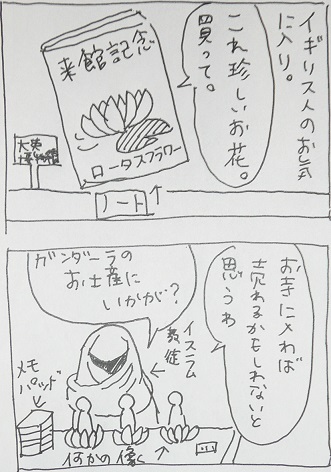 イギリス人のお気
に入り。
これ珍しいお花。
買って。
来館記念
ロータスフラワー
大英
博物館
ノート
お寺に〆わば
売れるかもしれないと
思うわ
ガンダーラの
お土産に
いかがが?
イスラム
教徒
メモ
パッド
何かの像